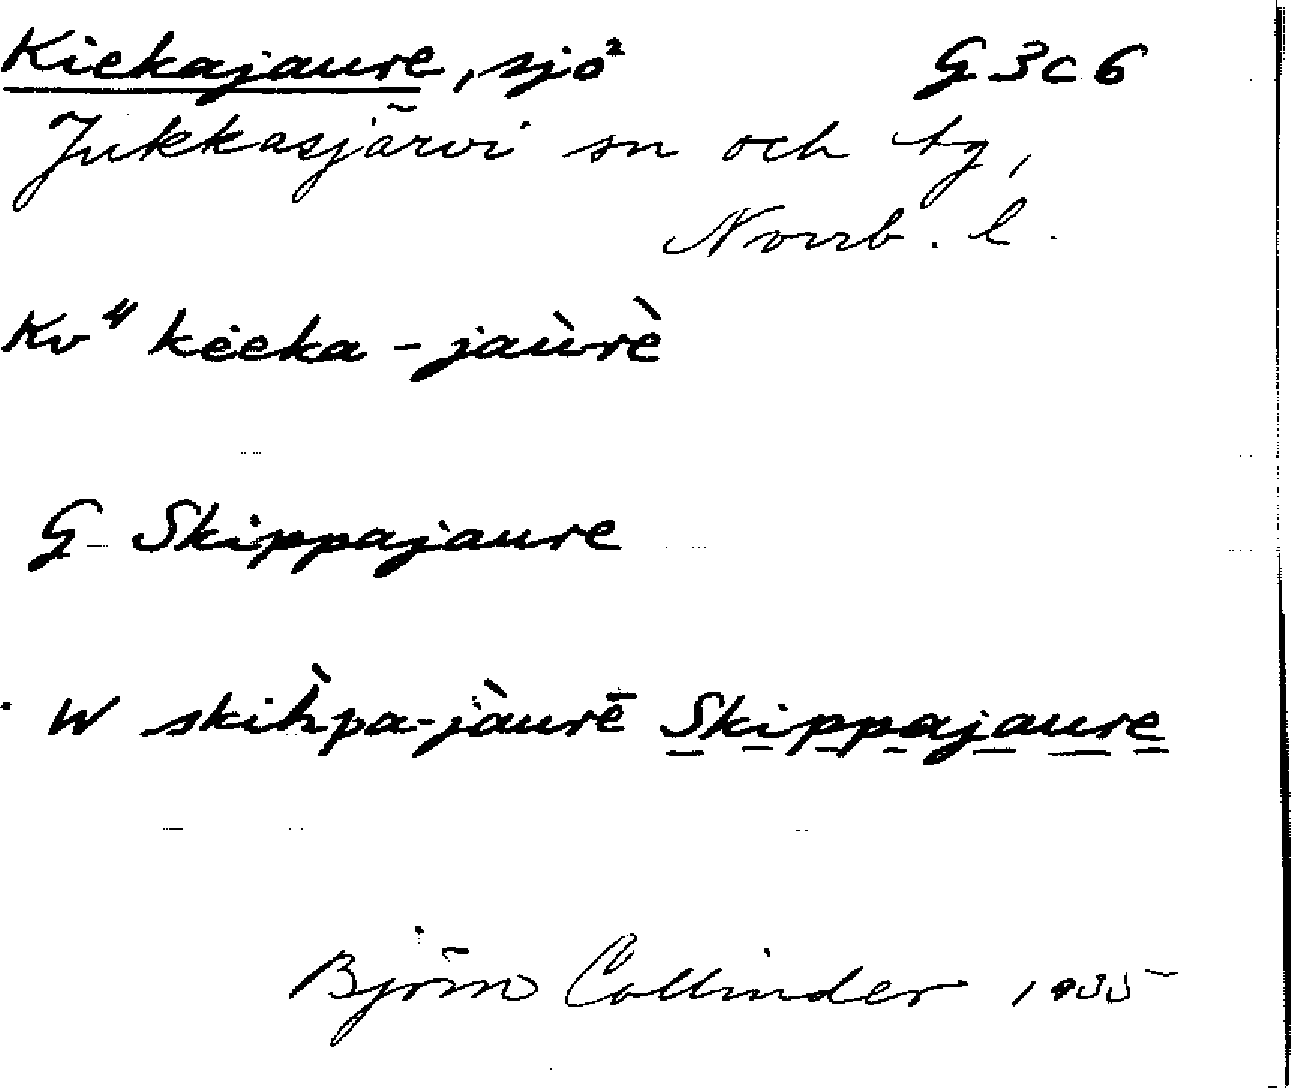 Kiekajaure, sjö G3c6
Jukkasjärvi sn och tg,
Norrb. l.
Kv⁴ kèeka-jaùrè
G Skippajaure
W skiȟpa-jàurē Skippajaure
Björn Collinder 1935